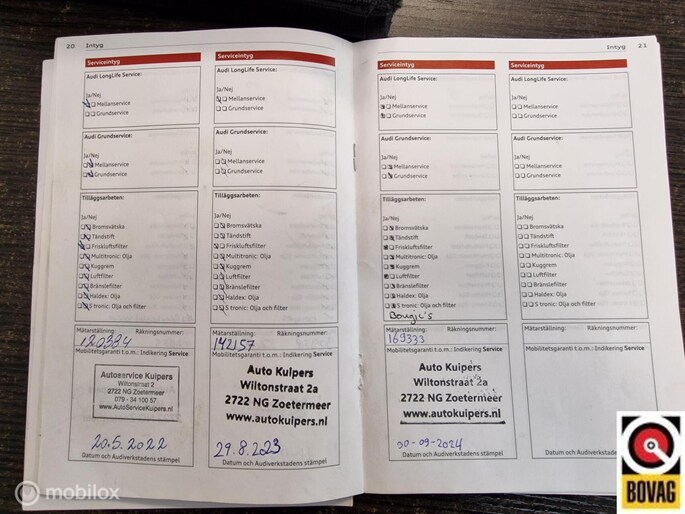 20 Intyg
Serviceintyg
Audi LongLife Service:
Ja/Nej
Mellanservice
Grundservice
Audi Grundservice:
Ja/Nej
Mellanservice
Grundservice
Tilläggsarbeten:
Ja/Nej
Bromsvätska
Tändstift
Friskluftsfilter
Multitronic: Olja
Kuggrem
Luftfilter
Bränslefilter
Haldex: Olja
S tronic: Olja och filter
Mätarställning: Räkningsnummer:
120384
Mobilitetsgaranti t.o.m.: Indikering Service
Autoservice Kuipers
Wiltonstraat 2
2722 NG Zoetermeer
079 - 34 100 57
www.AutoServiceKuipers.nl
20.5.2022
Datum och Audiverkstadens stämpel
Serviceintyg
Audi LongLife Service:
Ja/Nej
Mellanservice
Grundservice
Audi Grundservice:
Ja/Nej
Mellanservice
Grundservice
Tilläggsarbeten:
Ja/Nej
Bromsvätska
Tändstift
Friskluftsfilter
Multitronic: Olja
Kuggrem
Luftfilter
Bränslefilter
Haldex: Olja
S tronic: Olja och filter
Mätarställning: Räkningsnummer:
142157
Mobilitetsgaranti t.o.m.: Indikering Service
Auto Kuipers
Wiltonstraat 2a
2722 NG Zoetermeer
www.autokuipers.nl
29.8.2023
Datum och Audiverkstadens stämpel
Intyg 21
Serviceintyg
Audi LongLife Service:
Ja/Nej
Mellanservice
Grundservice
Audi Grundservice:
Ja/Nej
Mellanservice
Grundservice
Tilläggsarbeten:
Ja/Nej
Bromsvätska
Tändstift
Friskluftsfilter
Multitronic: Olja
Kuggrem
Luftfilter
Bränslefilter
Haldex: Olja
S tronic: Olja och filter
Bougie's
Mätarställning: Räkningsnummer:
169333
Mobilitetsgaranti t.o.m.: Indikering Service
Auto Kuipers
Wiltonstraat 2a
2722 NG Zoetermeer
www.autokuipers.nl
-09-2024
Datum och Audiverkstadens stämpel
Serviceintyg
Audi LongLife Service:
Ja/Nej
Mellanservice
Grundservice
Audi Grundservice:
Ja/Nej
Mellanservice
Grundservice
Tilläggsarbeten:
Ja/Nej
Bromsvätska
Tändstift
Friskluftsfilter
Multitronic: Olja
Kuggrem
Luftfilter
Bränslefilter
Haldex: Olja
S tronic: Olja och filter
Mätarställning: Räkningsnummer:
Mobilitetsgaranti t.o.m.: Indikering Service
Datum och Audiverkstadens stämpel
mobilox
BOVAG